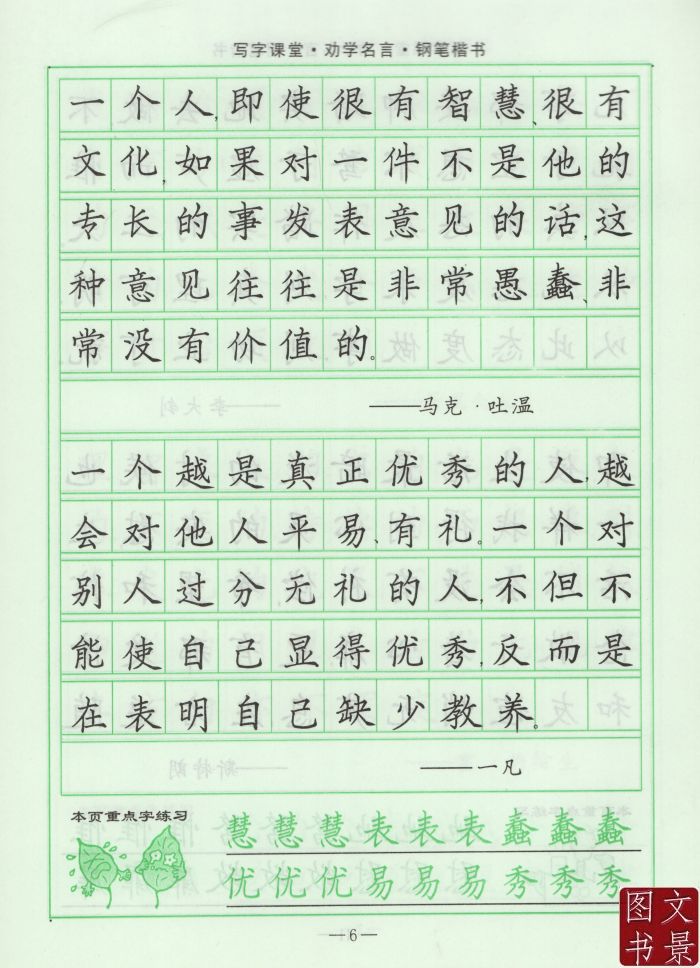 写字课堂·劝学名言·钢笔楷书
一个人,即使很有智慧、很有
文化,如果对一件不是他的
专长的事发表意见的话,这
种意见往往是非常愚蠢、非
常没有价值的。
——马克·吐温
一个越是真正优秀的人,越
会对他人平易、有礼。一个对
别人过分无礼的人,不但不
能使自己显得优秀,反而是
在表明自己缺少教养。
——一凡
本页重点字练习
慧慧慧表表表蠢蠢蠢
优优优易易易秀秀秀
—6—
图文
书景